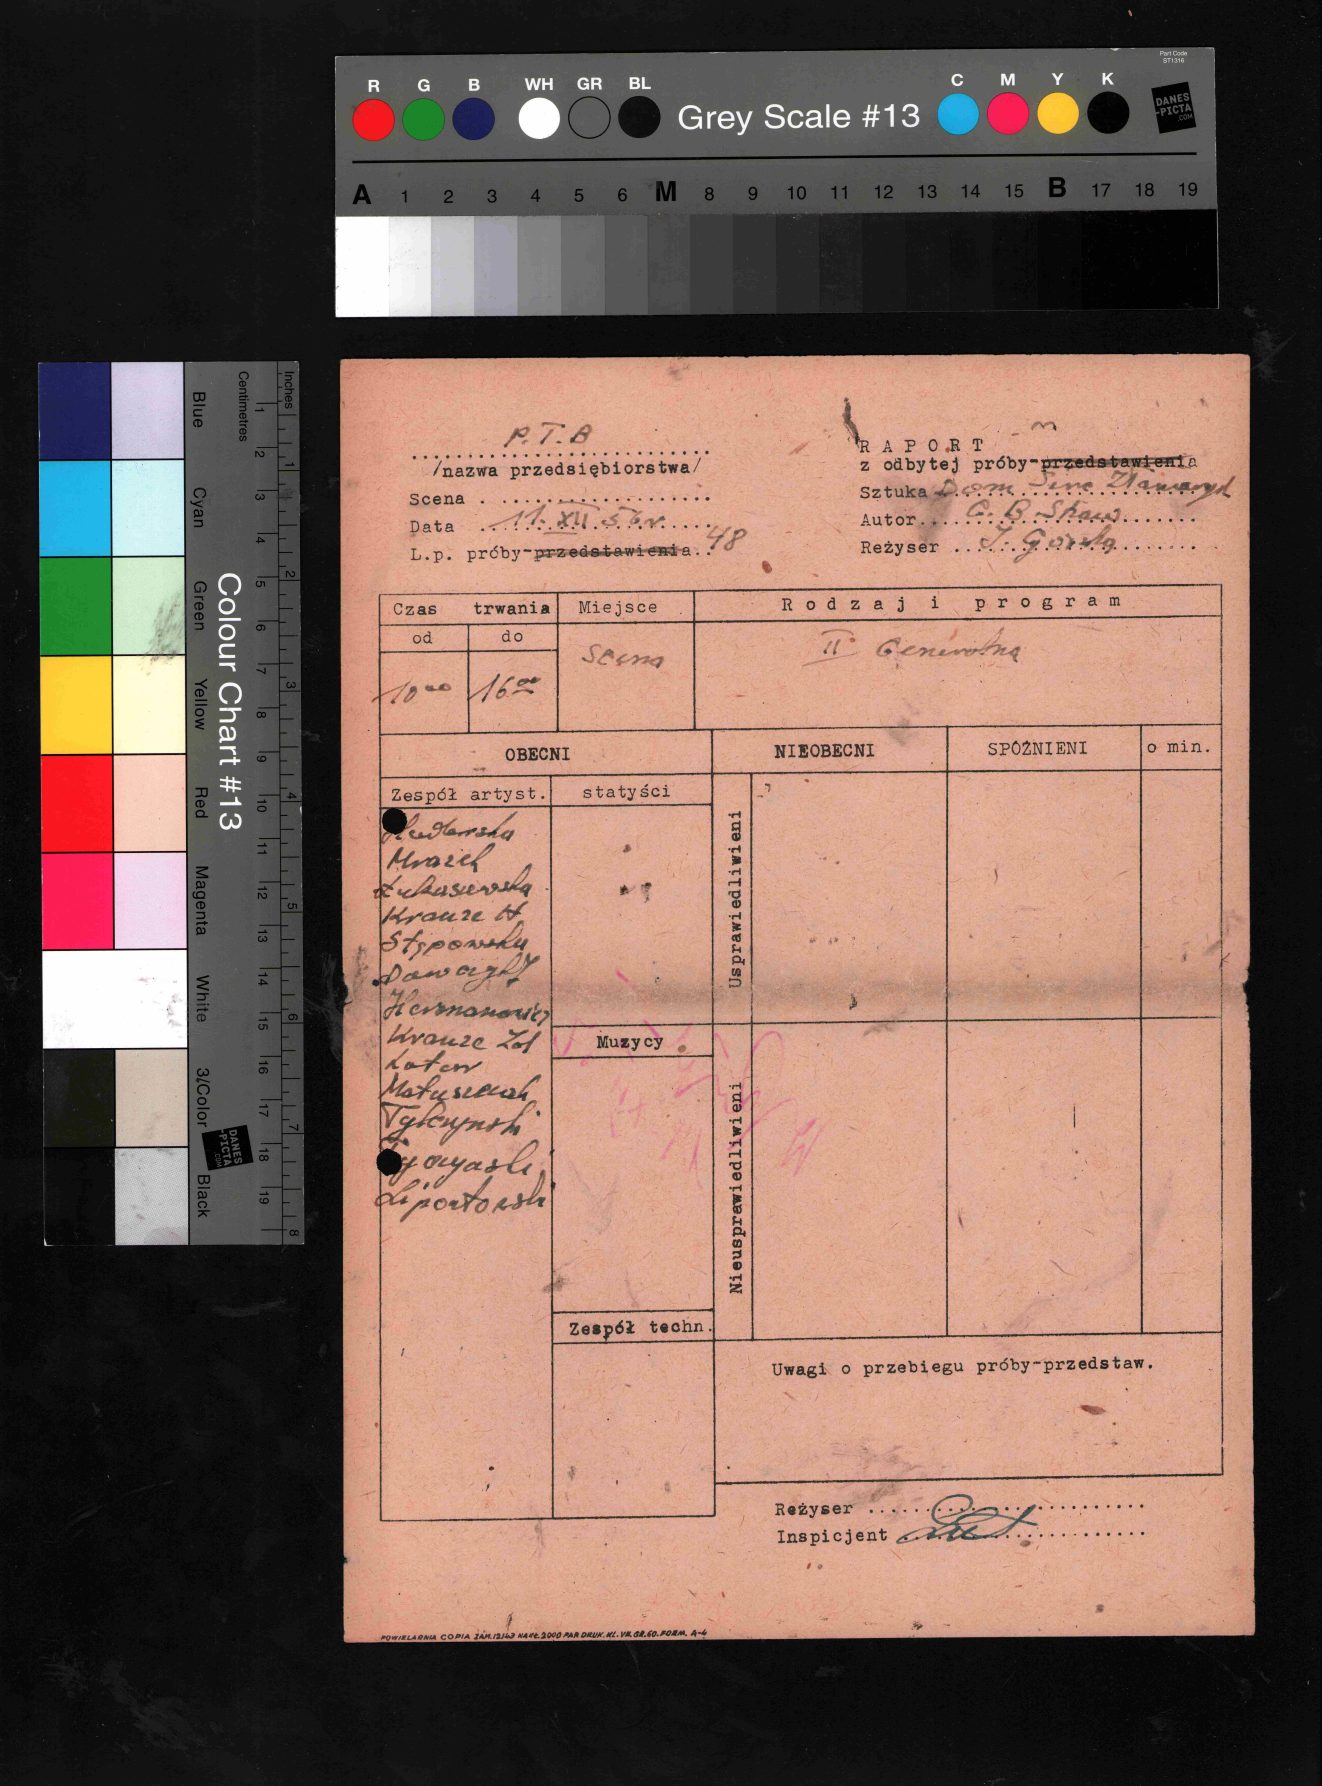 Part Code
ST1316
R G B WH GR BL Grey Scale #13 C M Y K
DANES
-PICTA
.COM
A 1 2 3 4 5 6 M 8 9 10 11 12 13 14 15 B 17 18 19
Colour Chart #13
Blue Cyan Green Yellow Red Magenta White 3/Color Black
Centimetres 1 2 3 4 5 6 7 8 9 10 11 12 13 14 15 16 17 18 19
Inches 1 2 3 4 5 6 7 8
DANES
-PICTA
.COM
P.T.B
/nazwa przedsiębiorstwa/
Scena
Data 11. XII 56 r.
L.p. próby-przedstawienia 48
RAPORT
z odbytej próby-przedstawienia
Sztuka Dom Serc
Autor G. B Shaw
Reżyser I. Górska
Czas trwania
Miejsce
Rodzaj i program
od
do
10 00
16 00
Scena
II Generalna
OBECNI
NIEOBECNI
SPÓŹNIENI
o min.
Zespół artyst.
statyści
Mrazek
Łukasiewska
Krauze H
Stępowska
Hermanowicz
Krauze
Matusiewicz
Tylczyński
Muzycy
Zespół techn.
Usprawiedliwieni
Nieusprawiedliwieni
Uwagi o przebiegu próby-przedstaw.
Reżyser
Inspicjent
POWIELARNIA COPIA ZAM. 12143 NAKŁ. 2000 PAR DRUK. KL. VII. GR. 60. FORM. A-4